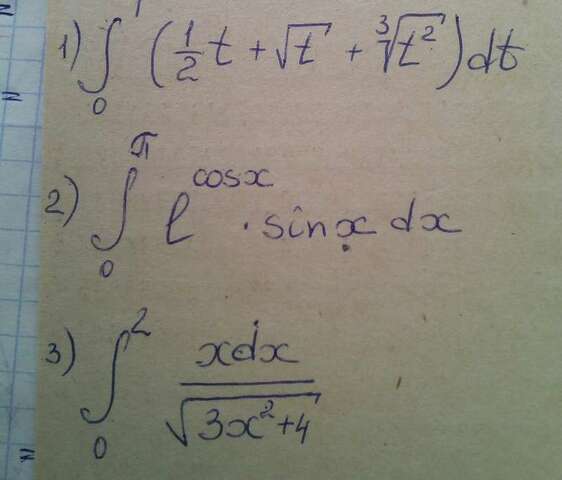 1) ∫₀¹ (1/2 t + √t + ∛t²) dt
2) ∫₀^π e^cosx · sinx dx
3) ∫₀² xdx / √(3x²+4)